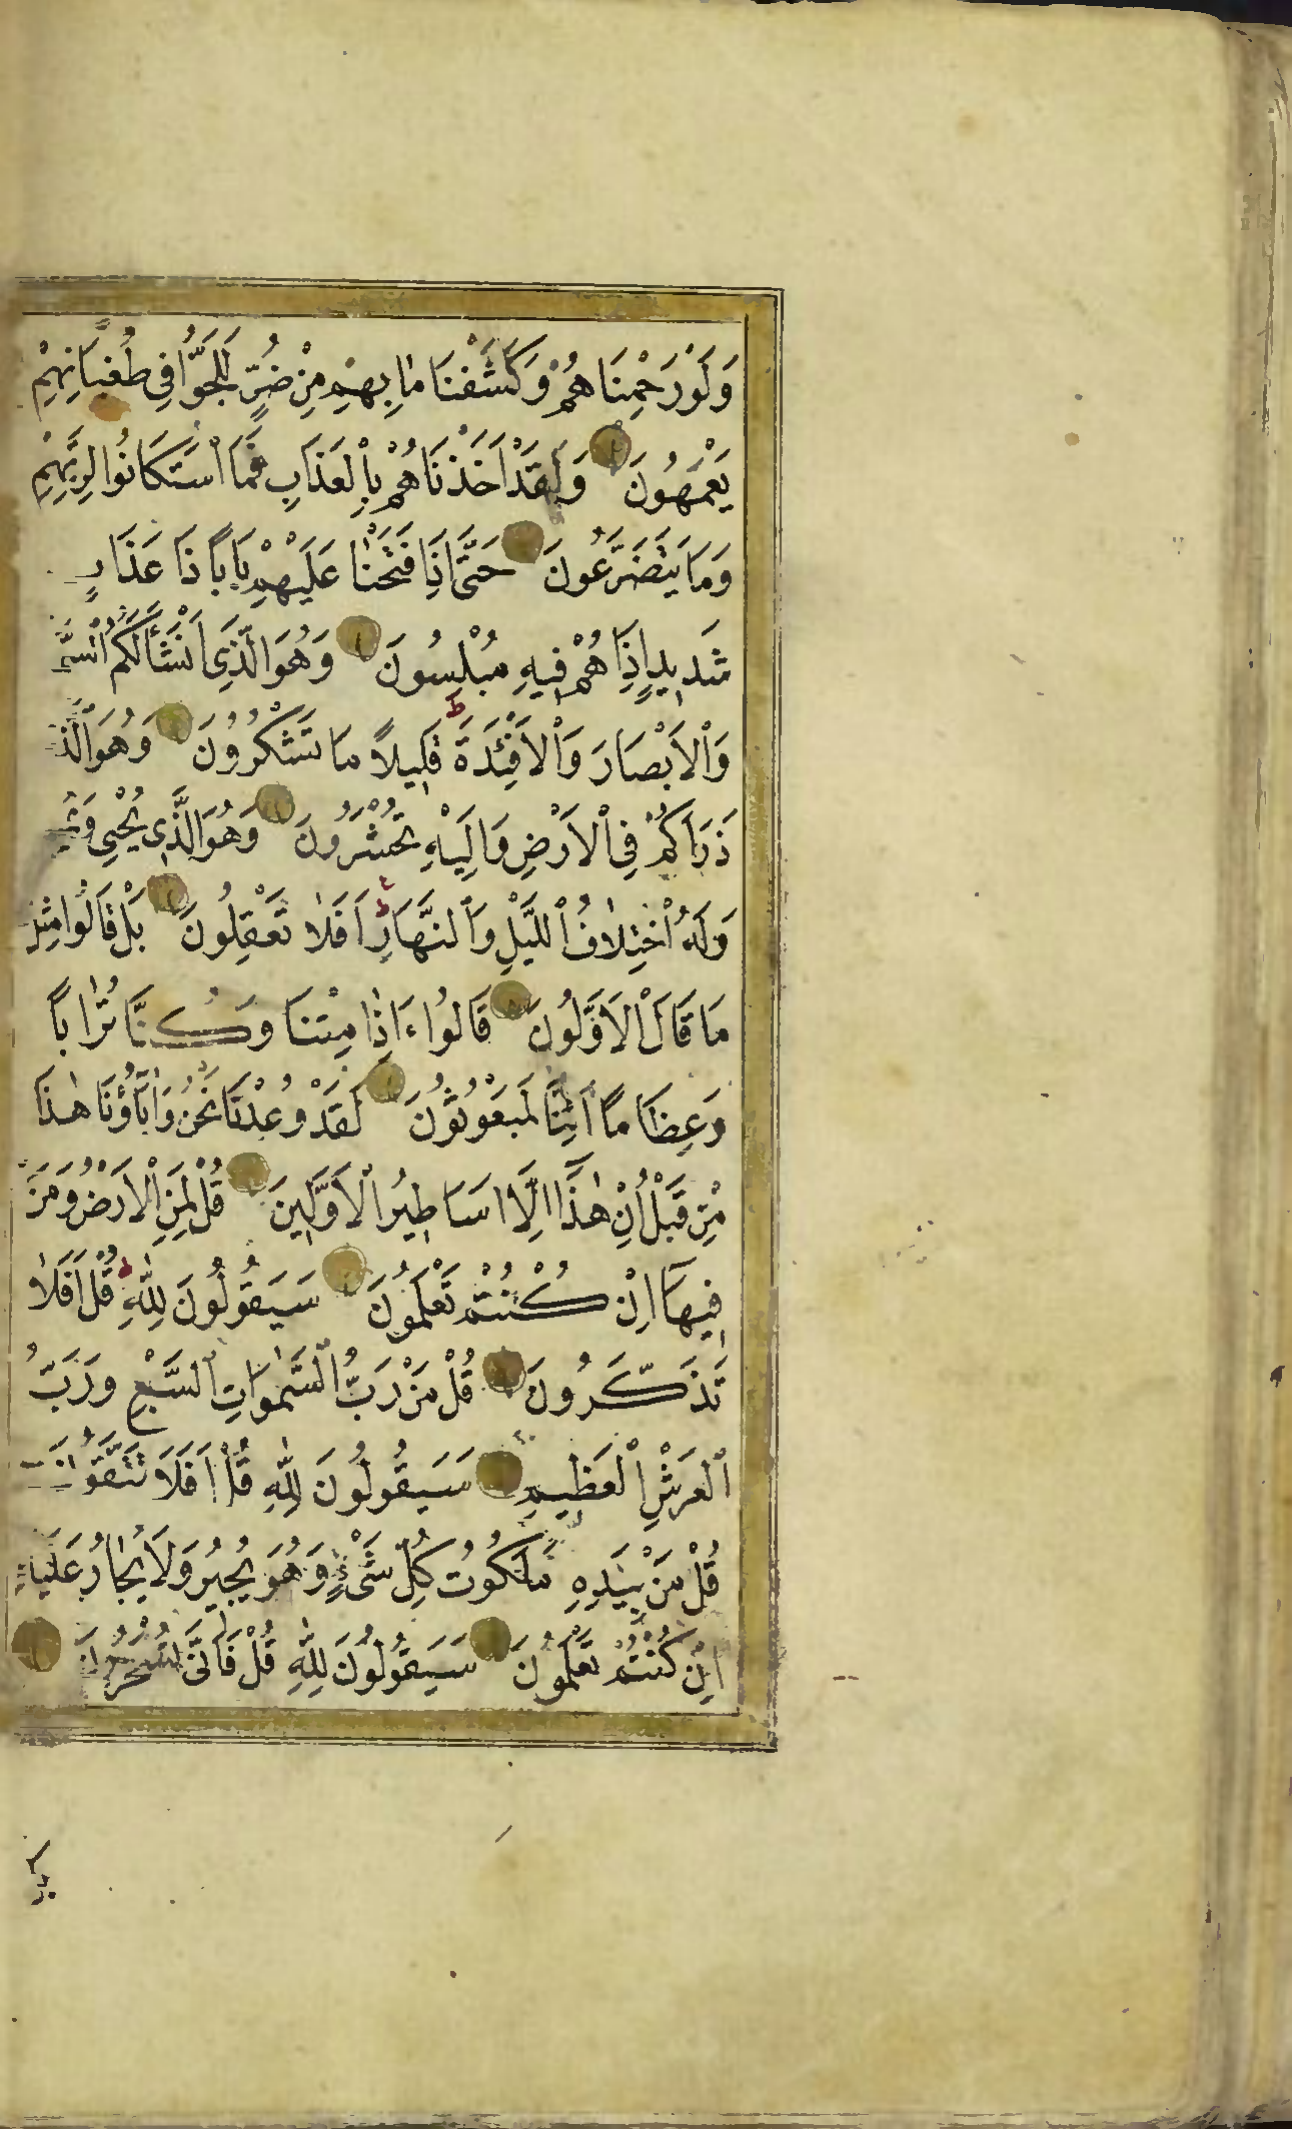 وَلَوْ رَحِمْنَاهُمْ وَكَشَفْنَا مَا بِهِمْ مِنْ ضُرٍّ لَلَجُّوا فِي طُغْيَانِهِمْ
يَعْمَهُونَ وَلَقَدْ اَخَذْنَاهُمْ بِالْعَذَابِ فَمَا اسْتَكَانُوا لِرَبِّهِمْ
وَمَا يَتَضَرَّعُونَ حَتَّى اِذَا فَتَحْنَا عَلَيْهِمْ بَابًا ذَا عَذَابٍ
شَدِيدٍ اِذَا هُمْ فِيهِ مُبْلِسُونَ وَهُوَ الَّذِي اَنْشَاَ لَكُمُ السَّمْ
وَالْاَبْصَارَ وَالْاَفْئِدَةَ قَلِيلًا مَا تَشْكُرُونَ وَهُوَ الَّذ
ذَرَاَكُمْ فِي الْاَرْضِ وَاِلَيْهِ تُحْشَرُونَ وَهُوَ الَّذِي يُحْيِي وَيُمِ
وَلَهُ اخْتِلَافُ اللَّيْلِ وَالنَّهَارِ اَفَلَا تَعْقِلُونَ بَلْ قَالُوا مِثْلَ
مَا قَالَ الْاَوَّلُونَ قَالُوا ءَاِذَا مِتْنَا وَكُنَّا تُرَابًا
وَعِظَامًا اَئِنَّا لَمَبْعُوثُونَ لَقَدْ وُعِدْنَا نَحْنُ وَاٰبَاؤُنَا هٰذَا
مِنْ قَبْلُ اِنْ هٰذَا اِلَّا اَسَاطِيرُ الْاَوَّلِينَ قُلْ لِمَنِ الْاَرْضُ وَمَنْ
فِيهَا اِنْ كُنْتُمْ تَعْلَمُونَ سَيَقُولُونَ لِلّٰهِ قُلْ اَفَلَا
تَذَكَّرُونَ قُلْ مَنْ رَبُّ السَّمٰوَاتِ السَّبْعِ وَرَبُّ
الْعَرْشِ الْعَظِيمِ سَيَقُولُونَ لِلّٰهِ قُلْ اَفَلَا تَتَّقُونَ
قُلْ مَنْ بِيَدِهِ مَلَكُوتُ كُلِّ شَيْءٍ وَهُوَ يُجِيرُ وَلَا يُجَارُ عَلَيْهِ
اِنْ كُنْتُمْ تَعْلَمُونَ سَيَقُولُونَ لِلّٰهِ قُلْ فَاَنَّى تُسْحَرُونَ
بل